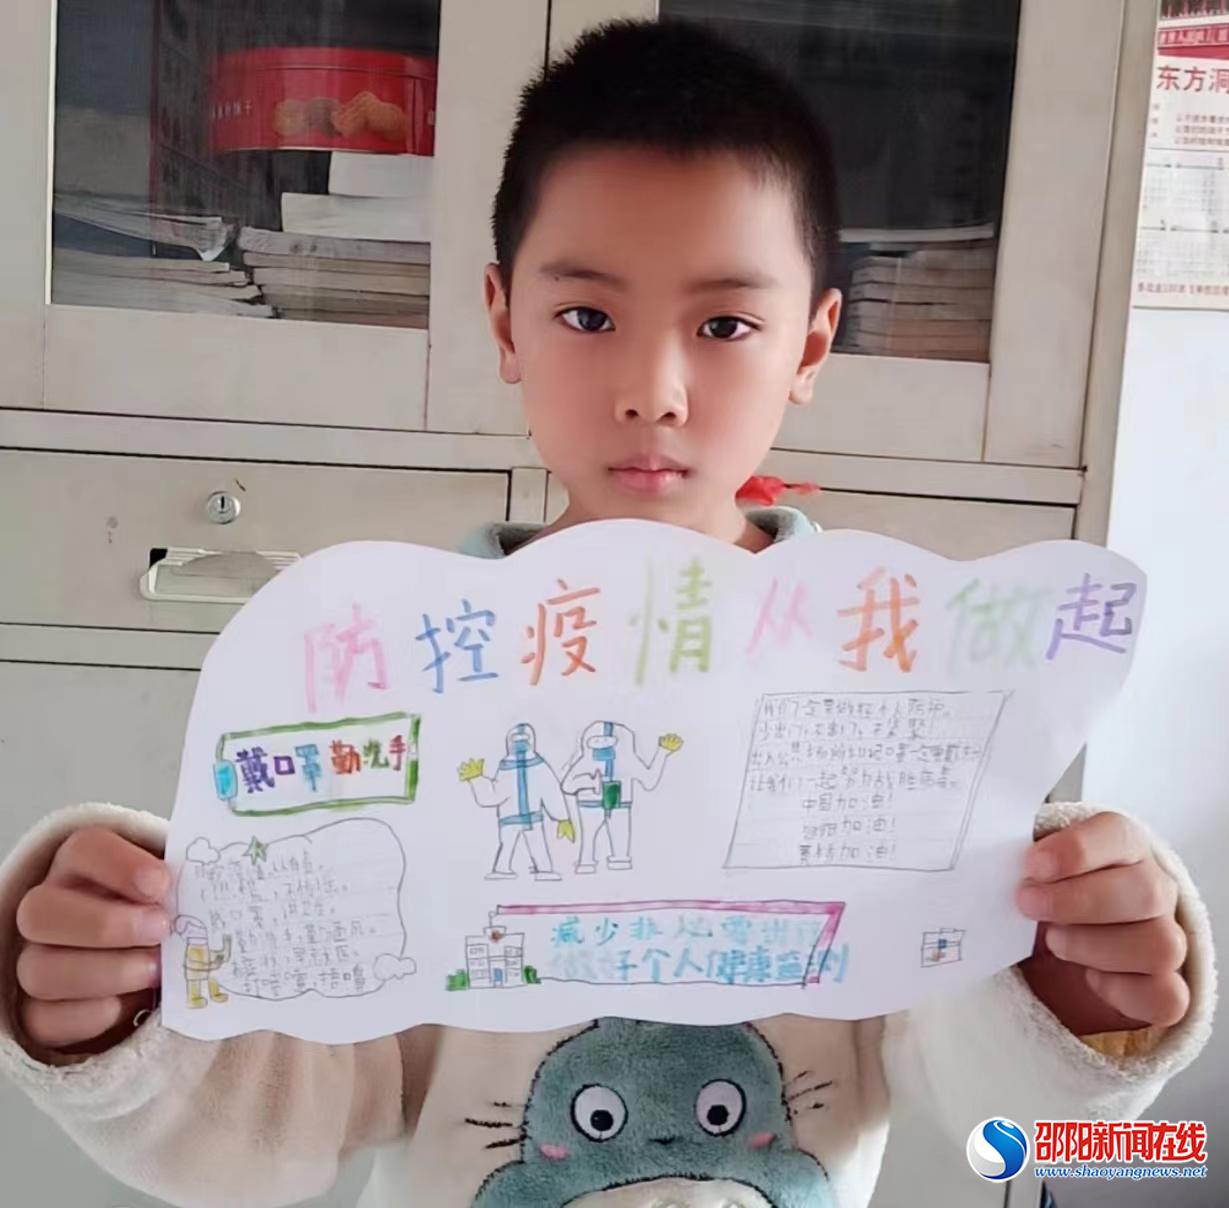 东方洞
防控疫情从我做起
戴口罩勤洗手
我们一定要做好个人防护。
少出门,不串门,不聚
出入公共场所切记口罩一定要戴
让我们一起努力战胜病毒。
中国加油!
加油!
加油!
戴口罩,讲卫生。
勤洗手,勤通风。
打喷嚏,捂嘴
减少非必需出行
做好个人健康监测
邵阳新闻在线
www.shaoyangnews.net